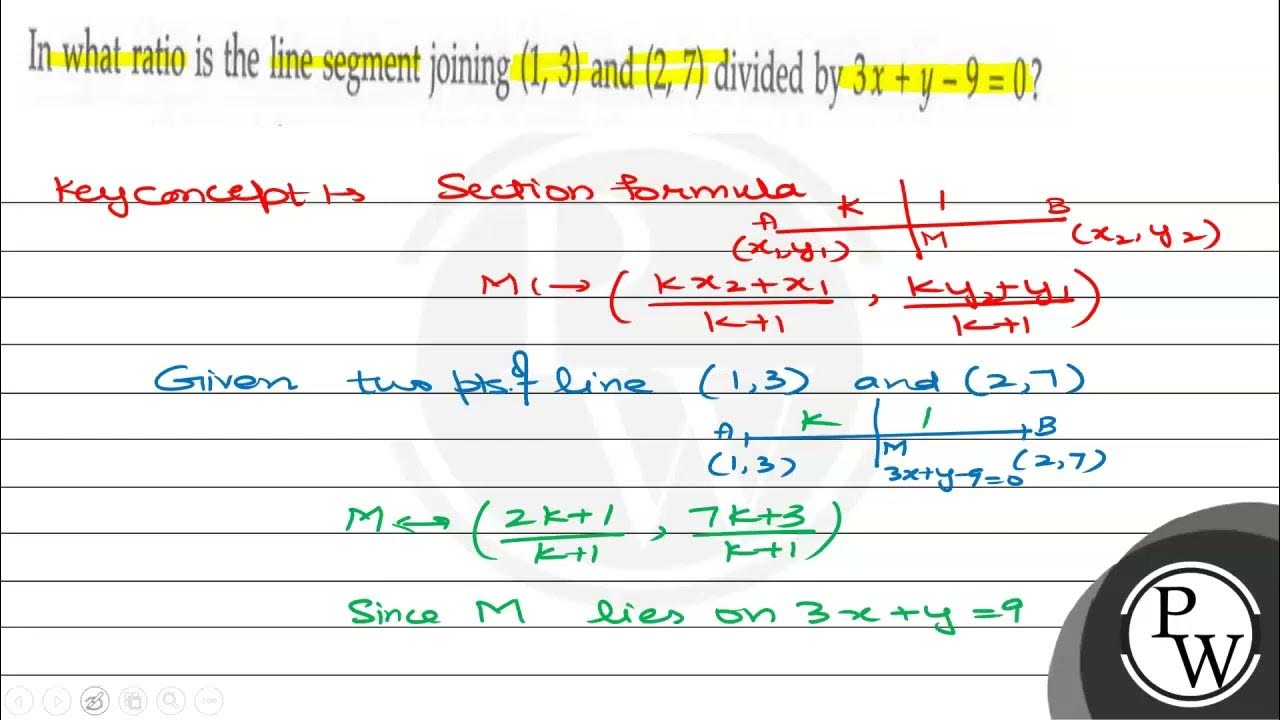 In what ratio is the line segment joining (1, 3) and (2, 7) divided by 3x + y – 9 = 0?
Key concept ↦ Section formula
K 1
A M B
(x₁, y₁) (x₂, y₂)
M ↦ ( (kx₂+x₁)/(k+1) , (ky₂+y₁)/(k+1) )
Given two pts. of line (1,3) and (2,7)
K 1
A M B
(1,3) 3x+y-9=0 (2,7)
M ↔ ( (2k+1)/(k+1) , (7k+3)/(k+1) )
Since M lies on 3x+y=9
P
W